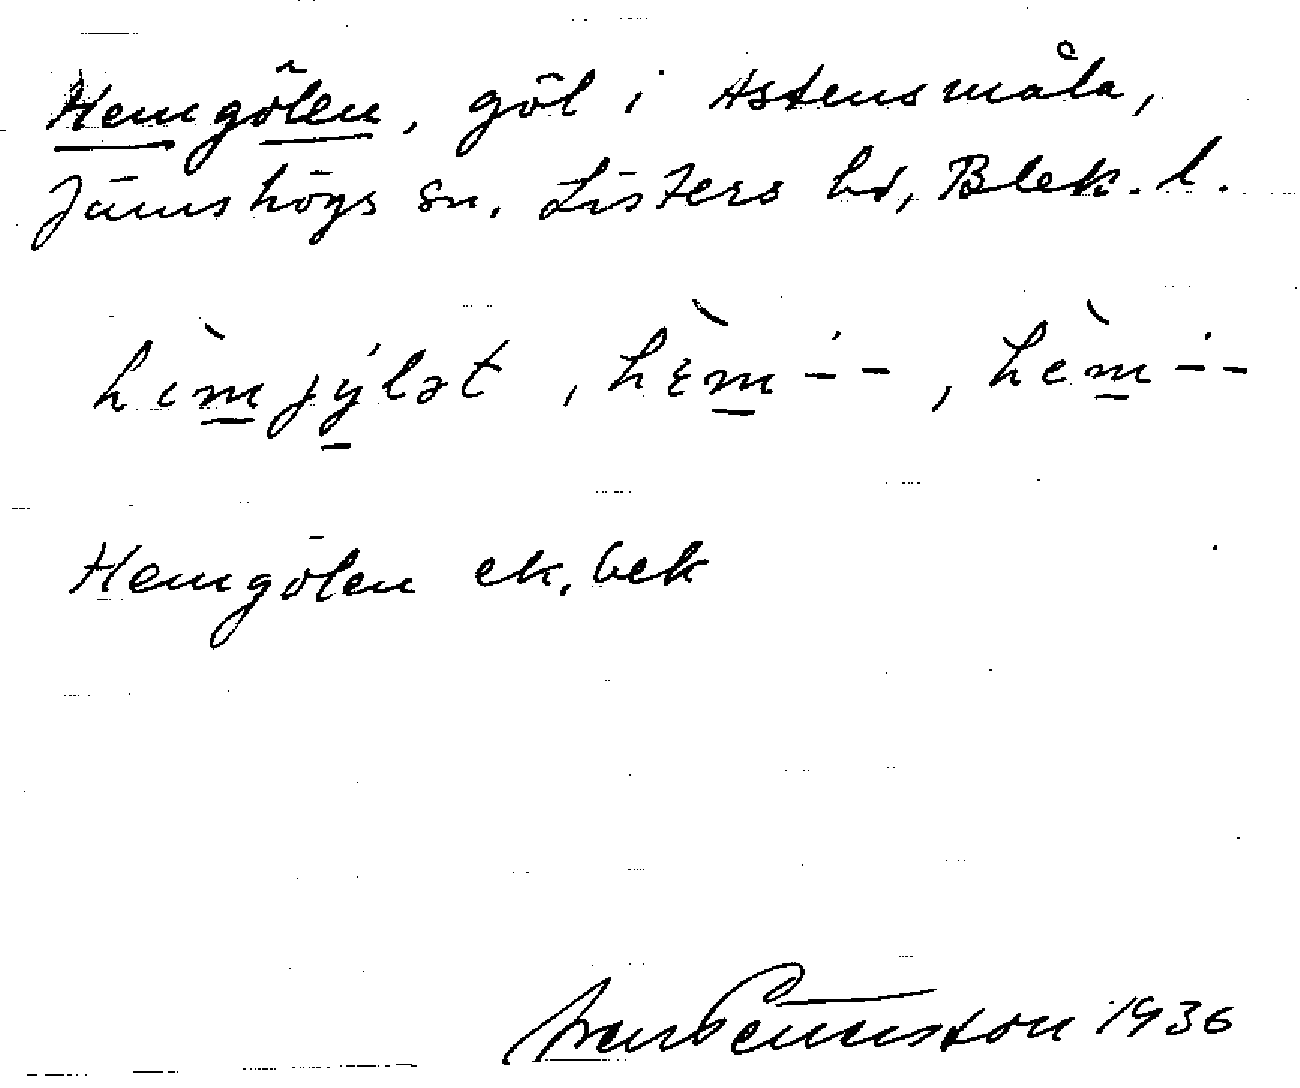 Hemgölen, göl i Astensmåla,
Jämshögs sn. Listers hd, Blek. l.
hɪ̀mjýlət, hɛ̀m---, hèm---
Hemgölen ek. bek
1936